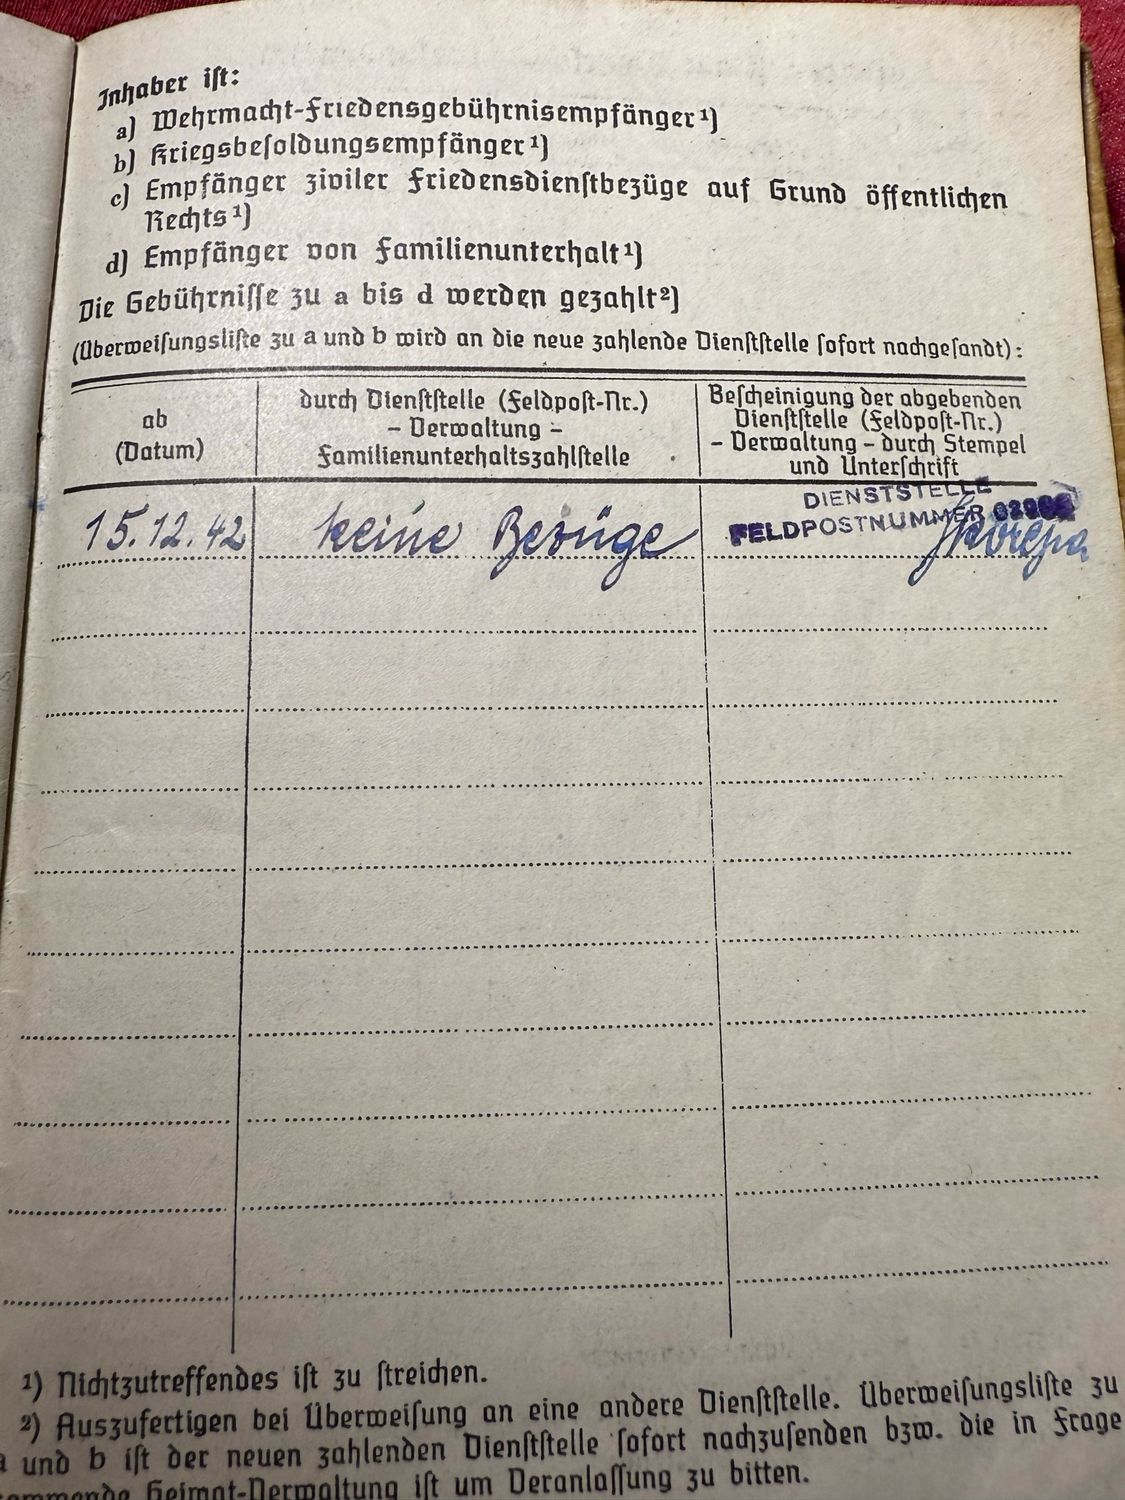 Inhaber ist:
a) Wehrmacht-Friedensgebührnisempfänger¹)
b) Kriegsbesoldungsempfänger¹)
c) Empfänger ziviler Friedensdienstbezüge auf Grund öffentlichen
Rechts¹)
d) Empfänger von Familienunterhalt¹)
Die Gebührnisse zu a bis d werden gezahlt²)
(Überweisungsliste zu a und b wird an die neue zahlende Dienststelle sofort nachgesandt):
ab
(Datum)
durch Dienststelle (Feldpost-Nr.)
– Verwaltung –
Familienunterhaltszahlstelle
Bescheinigung der abgebenden
Dienststelle (Feldpost-Nr.)
– Verwaltung – durch Stempel
und Unterschrift
15.12.42 keine Bezüge
DIENSTSTELLE
FELDPOSTNUMMER
¹) Nichtzutreffendes ist zu streichen.
²) Auszufertigen bei Überweisung an eine andere Dienststelle. Überweisungsliste zu
a und b ist der neuen zahlenden Dienststelle sofort nachzusenden bzw. die in Frage
ommende Heimat-Verwaltung ist um Veranlassung zu bitten.